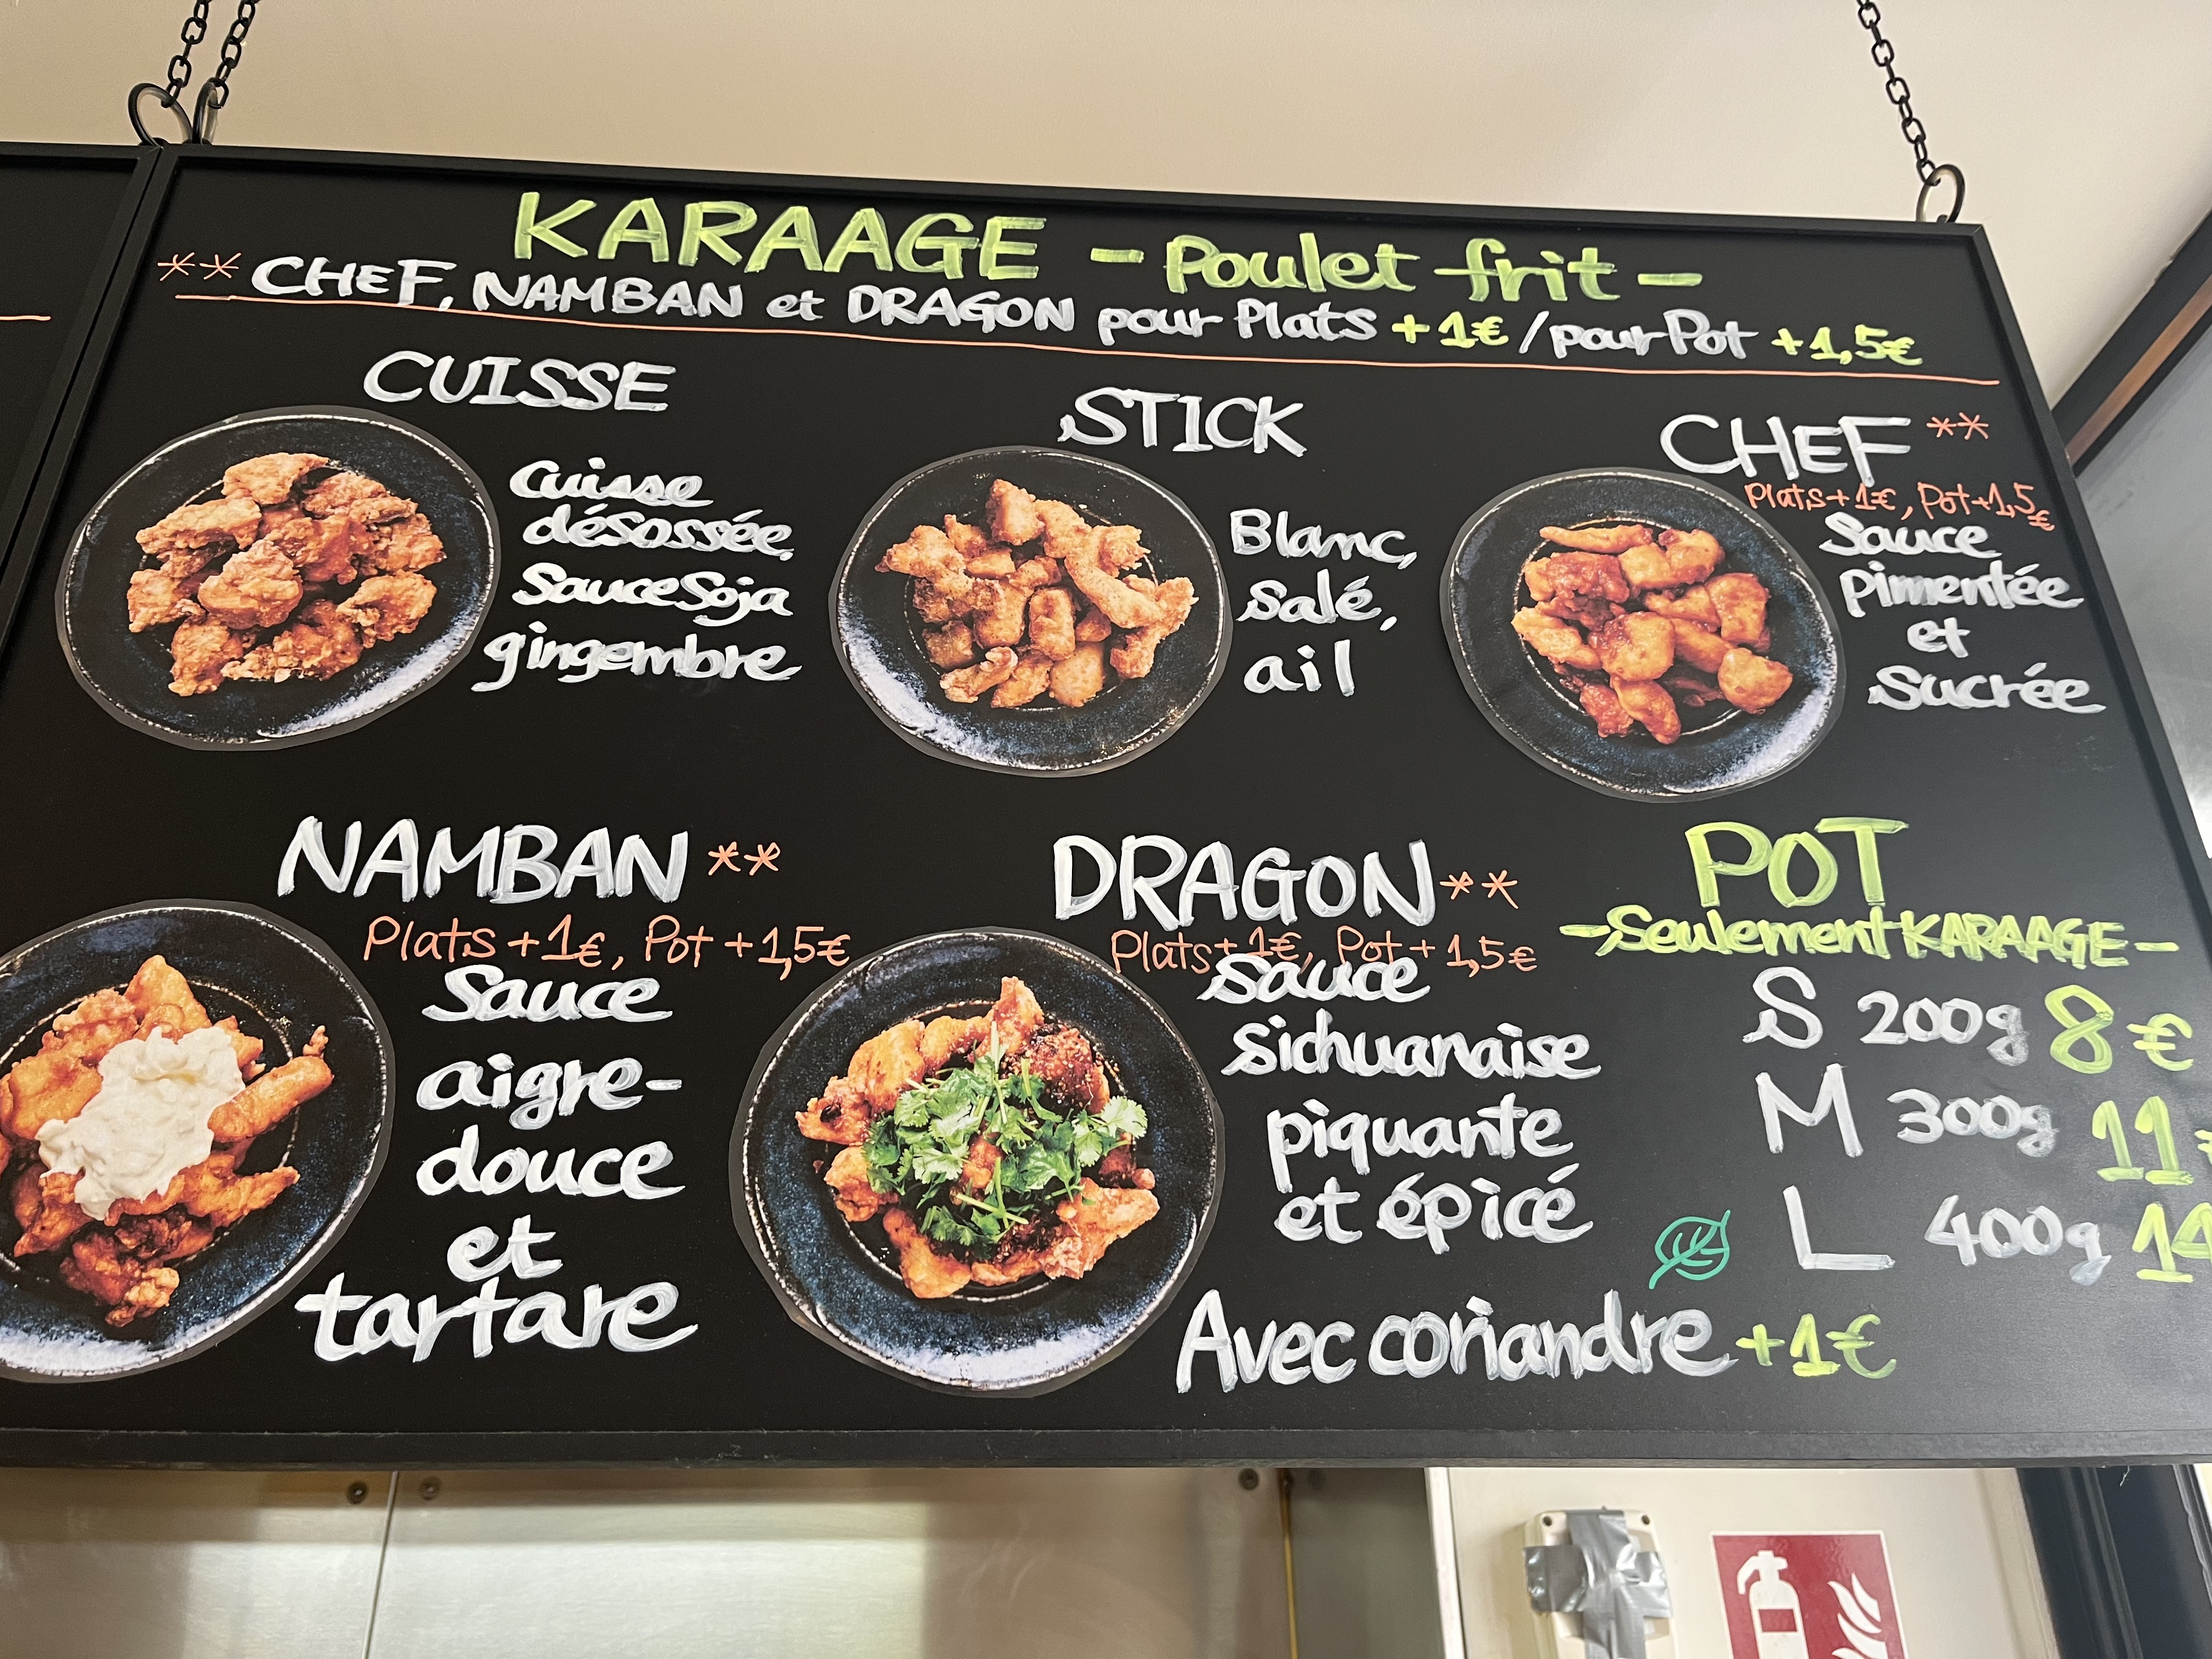 KARAAGE - Poulet frit -
** CHEF, NAMBAN et DRAGON pour Plats +1€ / pour Pot +1,5€
CUISSE
Cuisse
désossée,
Sauce Soja
gingembre
STICK
Blanc,
Salé,
ail
CHEF **
Plats +1€, Pot +1,5€
Sauce
Pimentée
et
Sucrée
NAMBAN **
Plats +1€, Pot +1,5€
Sauce
aigre-
douce
et
tartare
DRAGON **
Plats +1€, Pot +1,5€
Sauce
Sichuanaise
piquante
et épicé
Avec coriandre +1€
POT
- Seulement KARAAGE -
S 200g 8€
M 300g 11
L 400g 14